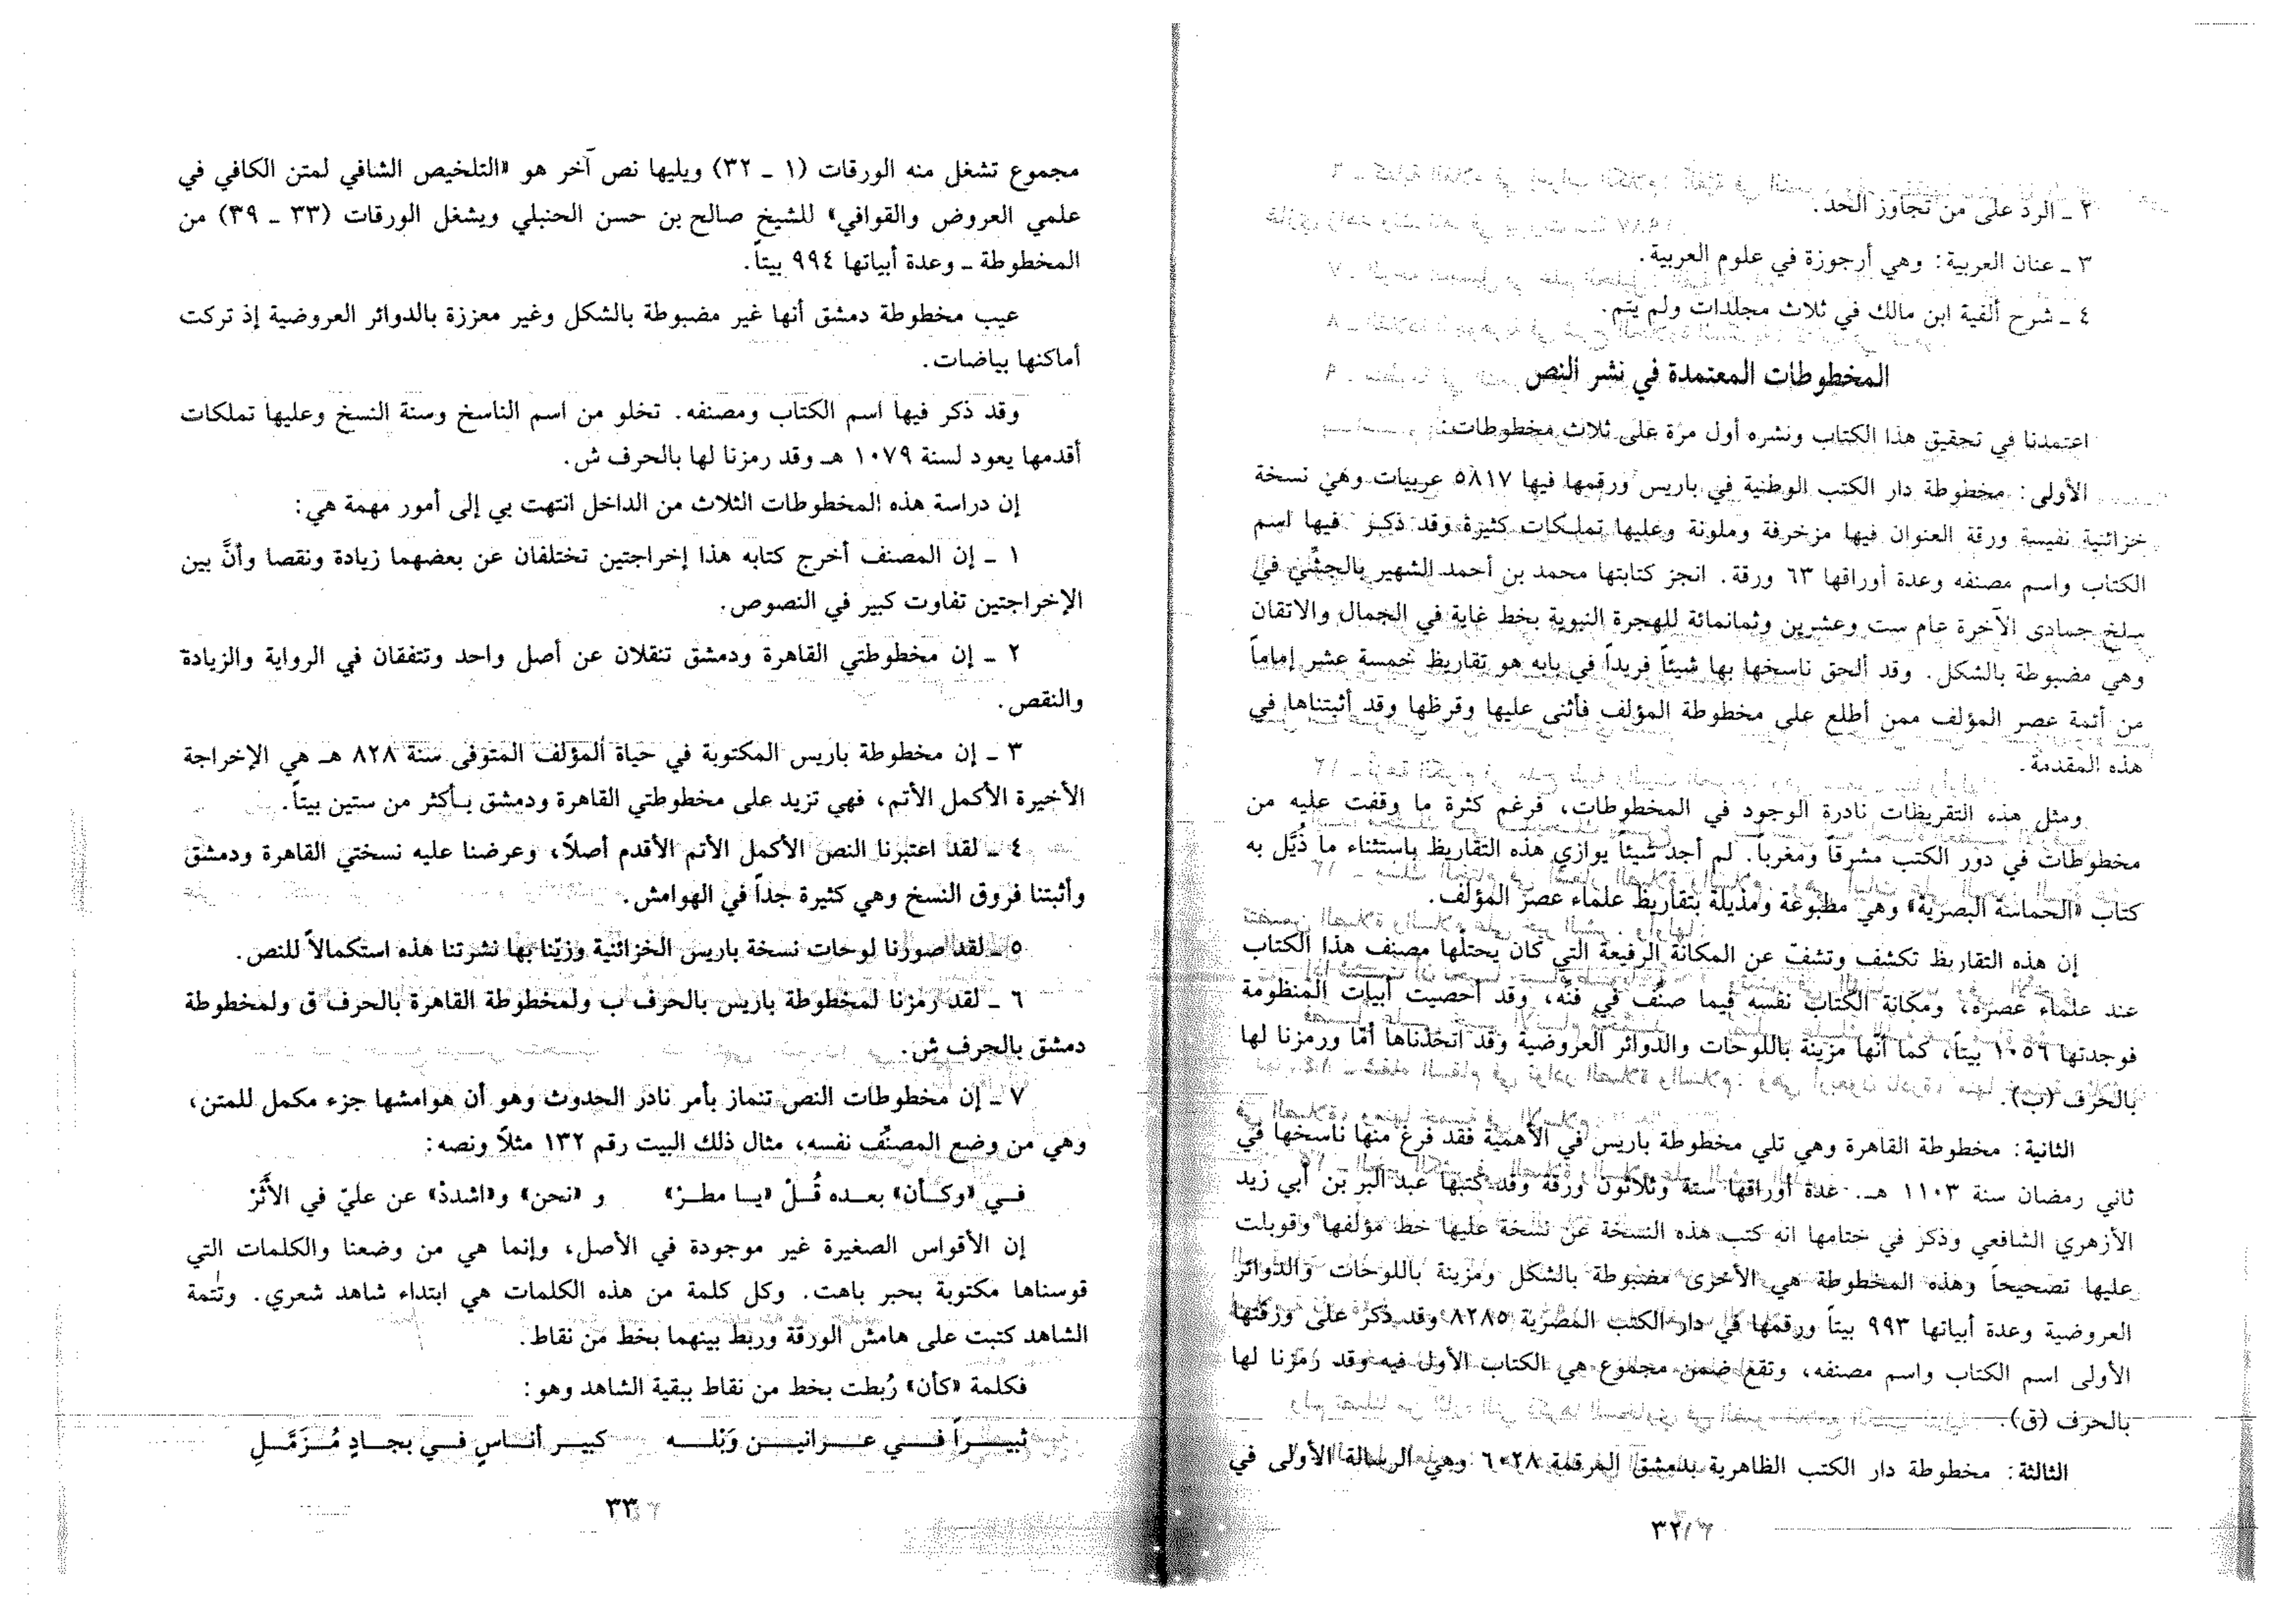 ٢ ـ الرد على من تجاوز الحد.
٣ ـ عنان العربية: وهي أرجوزة في علوم العربية.
٤ ـ شرح ألفية ابن مالك في ثلاث مجلدات ولم يتم.
المخطوطات المعتمدة في نشر النص
اعتمدنا في تحقيق هذا الكتاب ونشره أول مرة على ثلاث مخطوطات:
الأولى: مخطوطة دار الكتب الوطنية في باريس ورقمها فيها ٥٨١٧ عربيات وهي نسخة
خزائنية نفيسة ورقة العنوان فيها مزخرفة وملونة وعليها تملكات كثيرة وقد ذكر فيها اسم
الكتاب واسم مصنفه وعدة أوراقها ٦٣ ورقة. انجز كتابتها محمد بن أحمد الشهير بالجثّني في
سلخ جمادى الآخرة عام ست وعشرين وثمانمائة للهجرة النبوية بخط غاية في الجمال والاتقان
وهي مضبوطة بالشكل. وقد ألحق ناسخها بها شيئاً فريداً في بابه هو تقاريظ خمسة عشر إماماً
من أئمة عصر المؤلف ممن أطلع على مخطوطة المؤلف فأثنى عليها وقرظها وقد أثبتناها في
هذه المقدمة.
ومثل هذه التقريظات نادرة الوجود في المخطوطات، فرغم كثرة ما وقفت عليه من
مخطوطات في دور الكتب مشرقاً ومغرباً. لم أجد شيئاً يوازي هذه التقاريظ باستثناء ما ذُيَّل به
كتاب «الحماسة البصرية» وهي مطبوعة ومذيلة بتقاريظ علماء عصر المؤلف.
إن هذه التقاريظ تكشف وتشفّ عن المكانة الرفيعة التي كان يحتلّها مصنف هذا الكتاب
عند علماء عصره، ومكانة الكتاب نفسه فيما صنِّف في فنّه، وقد أحصيت أبيات المنظومة
فوجدتها ١٠٥٦ بيتاً، كما أنّها مزينة باللوحات والدوائر العروضية وقد اتخذناها أمّا ورمزنا لها
بالحرف (ب).
الثانية: مخطوطة القاهرة وهي تلي مخطوطة باريس في الأهمية فقد فرغ منها ناسخها في
ثاني رمضان سنة ١١٠٣ هـ. عدة أوراقها ستة وثلاثون ورقة وقد كتبها عبد البر بن أبي زيد
الأزهري الشافعي وذكر في ختامها انه كتب هذه النسخة عن نسخة عليها خط مؤلفها وقوبلت
عليها تصحيحاً وهذه المخطوطة هي الأخرى مضبوطة بالشكل ومزينة باللوحات والدوائر
العروضية وعدة أبياتها ٩٩٣ بيتاً ورقمها في دار الكتب المصرية ٨٢٨٥ وقد ذكر على ورقتها
الأولى اسم الكتاب واسم مصنفه، وتقع ضمن مجموع هي الكتاب الأول فيه وقد رمزنا لها
بالحرف (ق).
الثالثة: مخطوطة دار الكتب الظاهرية بدمشق المرقمة ٦٠٢٨ وهي الرسالة الأولى في
٣٢
مجموع تشغل منه الورقات (١ ـ ٣٢) ويليها نص آخر هو «التلخيص الشافي لمتن الكافي في
علمي العروض والقوافي» للشيخ صالح بن حسن الحنبلي ويشغل الورقات (٣٣ ـ ٣٩) من
المخطوطة ـ وعدة أبياتها ٩٩٤ بيتاً.
عيب مخطوطة دمشق أنها غير مضبوطة بالشكل وغير معززة بالدوائر العروضية إذ تركت
أماكنها بياضات.
وقد ذكر فيها اسم الكتاب ومصنفه. تخلو من اسم الناسخ وسنة النسخ وعليها تملكات
أقدمها يعود لسنة ١٠٧٩ هـ وقد رمزنا لها بالحرف ش.
إن دراسة هذه المخطوطات الثلاث من الداخل انتهت بي إلى أمور مهمة هي:
١ ـ إن المصنف أخرج كتابه هذا إخراجتين تختلفان عن بعضهما زيادة ونقصا وأنَّ بين
الإخراجتين تفاوت كبير في النصوص.
٢ ـ إن مخطوطتي القاهرة ودمشق تنقلان عن أصل واحد وتتفقان في الرواية والزيادة
والنقص.
٣ ـ إن مخطوطة باريس المكتوبة في حياة المؤلف المتوفى سنة ٨٢٨ هـ هي الإخراجة
الأخيرة الأكمل الأتم، فهي تزيد على مخطوطتي القاهرة ودمشق بأكثر من ستين بيتاً.
٤ ـ لقد اعتبرنا النص الأكمل الأتم الأقدم أصلاً، وعرضنا عليه نسختي القاهرة ودمشق
وأثبتنا فروق النسخ وهي كثيرة جداً في الهوامش.
٥ ـ لقد صورنا لوحات نسخة باريس الخزائنية وزيّنا بها نشرتنا هذه استكمالاً للنص.
٦ ـ لقد رمزنا لمخطوطة باريس بالحرف ب ولمخطوطة القاهرة بالحرف ق ولمخطوطة
دمشق بالحرف ش.
٧ ـ إن مخطوطات النص تنماز بأمر نادر الحدوث وهو أن هوامشها جزء مكمل للمتن،
وهي من وضع المصنِّف نفسه، مثال ذلك البيت رقم ١٣٢ مثلاً ونصه:
فـي «وكـأن» بعـده قُـلْ «يـا مطـرْ» و «نحن» و«اشددْ» عن عليّ في الأثَرْ
إن الأقواس الصغيرة غير موجودة في الأصل، وإنما هي من وضعنا والكلمات التي
قوسناها مكتوبة بحبر باهت. وكل كلمة من هذه الكلمات هي ابتداء شاهد شعري. وتتمة
الشاهد كتبت على هامش الورقة وربط بينهما بخط من نقاط.
فكلمة «كأن» رُبطت بخط من نقاط ببقية الشاهد وهو:
ثبيـراً فـي عـرانيـن وَبْلـه كبيـر أنـاسٍ فـي بجـادٍ مُـزَمَّـلِ
٣٣